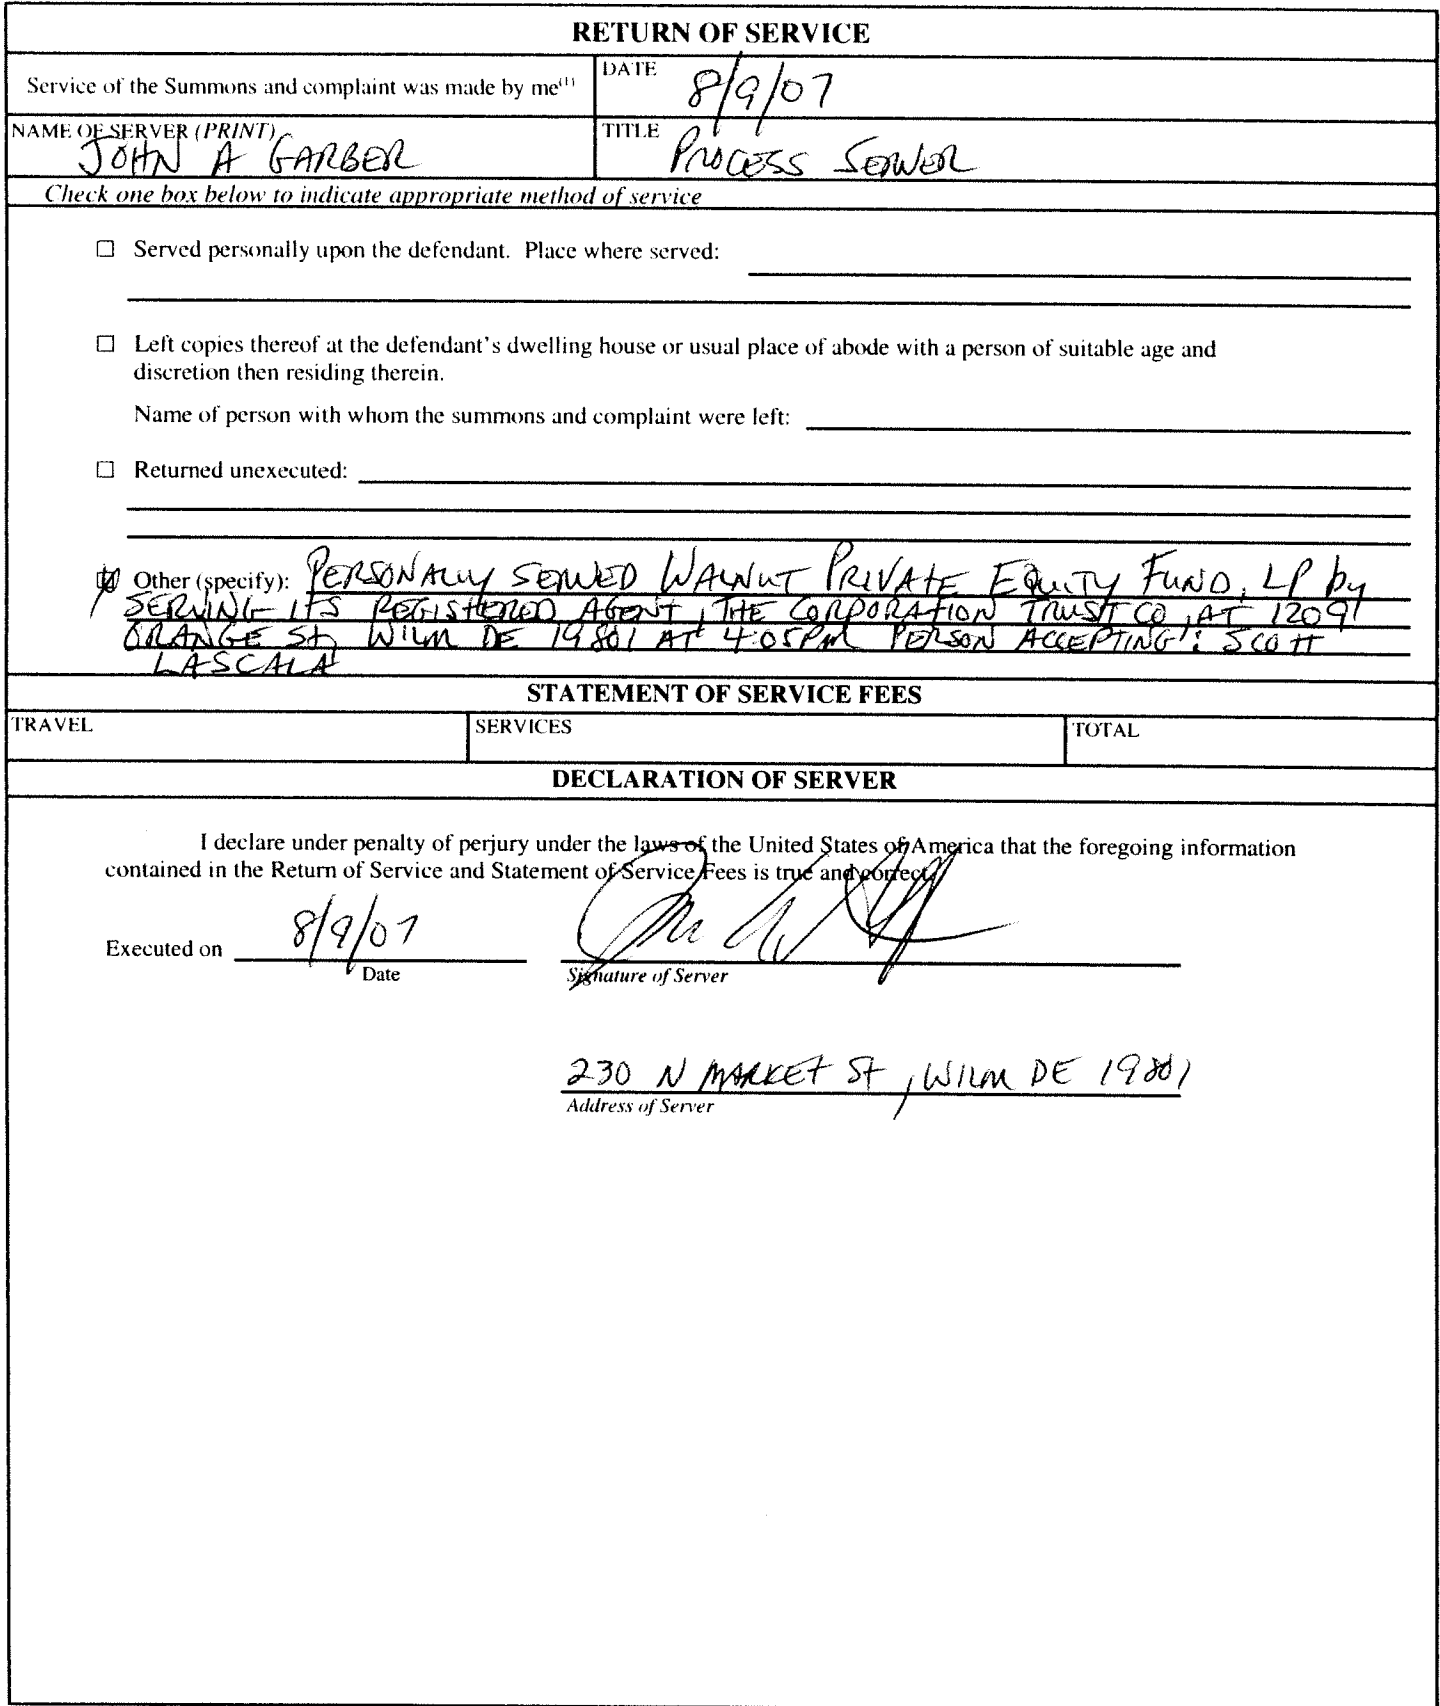 RETURN OF SERVICE
Service of the Summons and complaint was made by me(1)
DATE
8/9/07
NAME OF SERVER (PRINT)
JOHN A GARBER
TITLE
PROCESS SERVER
Check one box below to indicate appropriate method of service
☐ Served personally upon the defendant. Place where served:
☐ Left copies thereof at the defendant's dwelling house or usual place of abode with a person of suitable age and
discretion then residing therein.
Name of person with whom the summons and complaint were left:
☐ Returned unexecuted:
☒ Other (specify): PERSONALLY SERVED WALNUT PRIVATE EQUITY FUND, LP by
SERVING ITS REGISTERED AGENT, THE CORPORATION TRUST CO, AT 1209
ORANGE ST, WILM DE 19801 AT 4:05PM PERSON ACCEPTING: SCOTT
LASCALA
STATEMENT OF SERVICE FEES
TRAVEL
SERVICES
TOTAL
DECLARATION OF SERVER
I declare under penalty of perjury under the laws of the United States of America that the foregoing information
contained in the Return of Service and Statement of Service Fees is true and correct.
Executed on 8/9/07
Date
Signature of Server
230 N MARKET St, WILM DE 19801
Address of Server